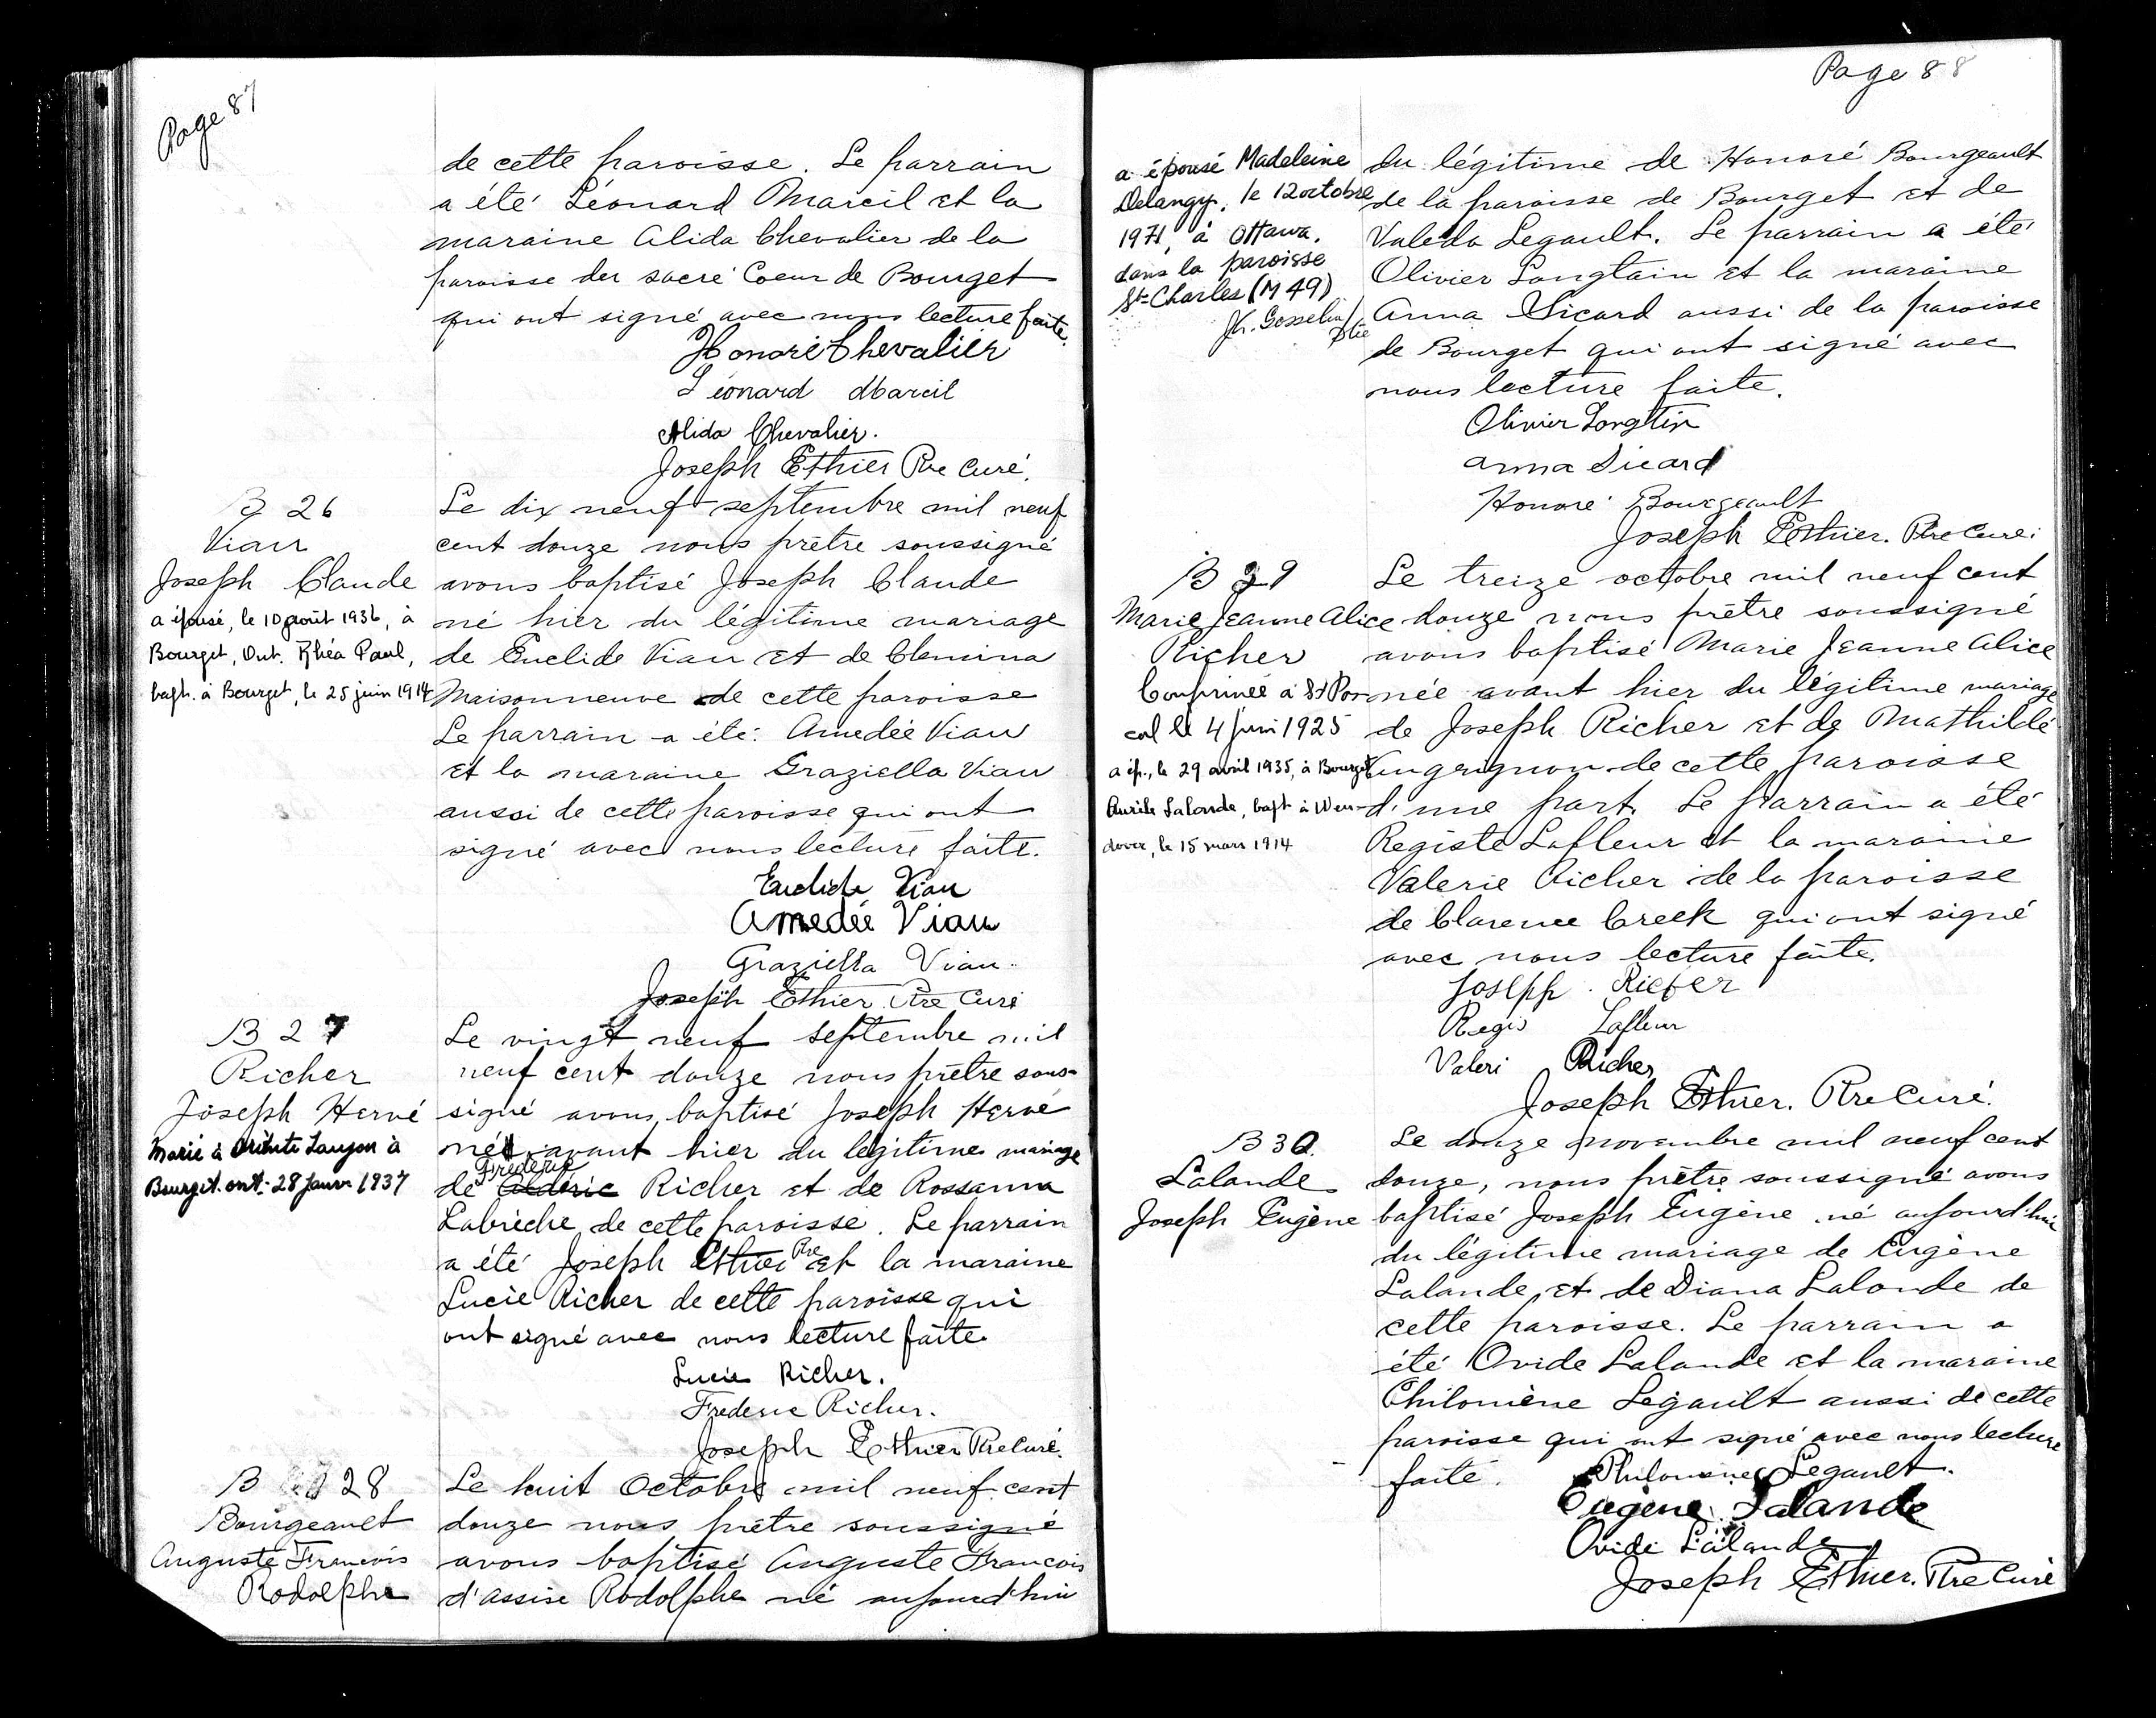 Page 87
de cette paroisse. Le parrain
a été Léonard Marcil et la
maraine Alida Chevalier de la
paroisse du sacré Coeur de Bourget
qui ont signé avec nous lecture faite.
Honoré Chevalier
Léonard Marcil
Alida Chevalier.
Joseph Ethier Ptre Curé.
B 26
Viau
Joseph Claude
a épousé, le 10 août 1936, à
Bourget, Ont. Rhéa Paul,
bapt. à Bourget, le 25 juin 1914
Le dix neuf septembre mil neuf
cent douze nous prêtre soussigné
avons baptisé Joseph Claude
né hier du légitime mariage
de Euclide Viau et de Clemina
Maisonneuve de cette paroisse
Le parrain a été: Amedée Viau
et la maraine Graziella Viau
aussi de cette paroisse qui ont
signé avec nous lecture faite.
Euclide Viau
Amedée Viau
Graziella Viau
Joseph Ethier Ptre Curé
B 27
Richer
Joseph Hervé
Marié à Lauzon à
Bourget. ont. 28 Janv 1937
Le vingt neuf septembre mil
neuf cent douze nous prêtre sous-
signé avons baptisé Joseph Hervé
né avant hier du légitime mariage
Frederic
de Aldéric Richer et de Rossanna
Labrèche de cette paroisse. Le parrain
a été Joseph Ethier Ptre et la maraine
Lucie Richer de cette paroisse qui
ont signé avec nous lecture faite.
Lucie Richer.
Frederic Richer.
Joseph Ethier Ptre Curé.
B 28
Bourgeault
Auguste Francois
Rodolphe
Le huit Octobre mil neuf cent
douze nous prêtre soussigné
avons baptisé Auguste Francois
d'assise Rodolphe né aujourd'hui
Page 88
a épousé Madeleine
Delangy, le 12 octobre
1971, à Ottawa,
dans la paroisse
St-Charles (M 49)
Jh. Gosselin
ptre
du légitime de Honoré Bourgeault
de la paroisse de Bourget et de
Valeda Legault. Le parrain a été
Olivier Longtain et la maraine
Anna Sicard aussi de la paroisse
de Bourget qui ont signé avec
nous lecture faite.
Olivier Longtin
Anna Sicard
Honoré Bourgeault
Joseph Ethier. Ptre Curé.
B 29
Marie Jeanne Alice
Richer
Confirmée à St Pas-
cal le 4 juin 1925
a ép., le 29 avril 1935, à Bourget
Aurèle Lalonde, bapt à Wen-
dover, le 15 mars 1914
Le treize octobre mil neuf cent
douze nous prêtre soussigné
avons baptisé Marie Jeanne Alice
née avant hier du légitime mariage
de Joseph Richer et de Mathilde
de cette paroisse
d'une part. Le parrain a été
Registe Lafleur et la maraine
Valerie Richer de la paroisse
de Clarence Creek qui ont signé
avec nous lecture faite.
Joseph Richer
Regis Lafleur
Valeri Richer
Joseph Ethier. Ptre Curé.
B 30.
Lalande
Joseph Eugène
Le douze novembre mil neuf cent
douze, nous prêtre soussigné avons
baptisé Joseph Eugène né aujourd'hui
du légitime mariage de Eugène
Lalande et de Diana Lalonde de
cette paroisse. Le parrain a
été Ovide Lalande et la maraine
Philomène Legault aussi de cette
paroisse qui ont signé avec nous lecture
faite.
Philomene Legault.
Eugène Lalande
Ovide Lalande
Joseph Ethier. Ptre Curé